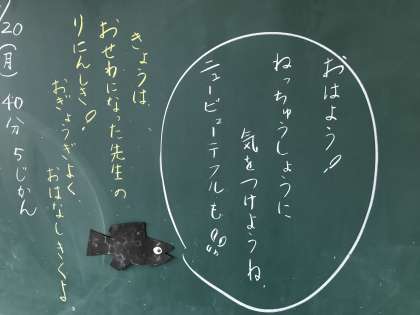 おはよう!
ねっちゅうしょうに
気をつけようね。
ニュービューテフルも
きょうは、
おせわになった先生の
りにんしき!
おぎょうぎよく、
おはなしきくよ。
/20(月) 40分 5じかん